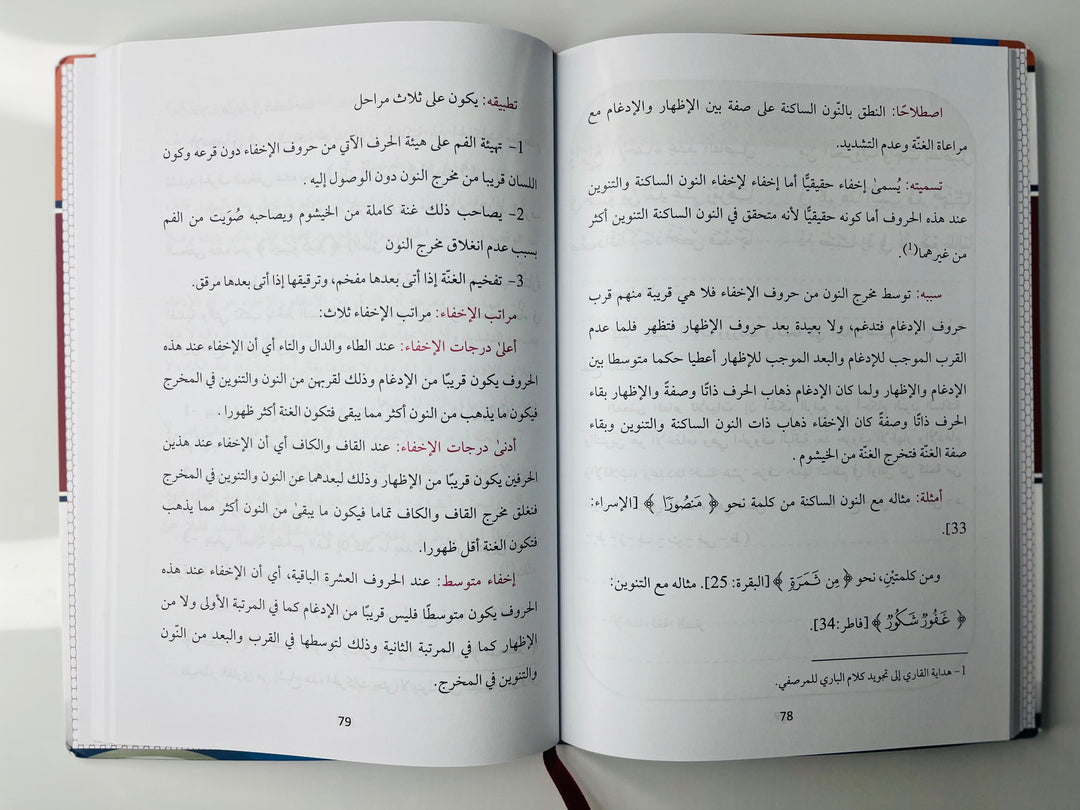 اصطلاحًا: النطق بالنّون الساكنة على صفة بين الإظهار والإدغام مع
مراعاة الغنّة وعدم التشديد.
تسميته: يُسمىٰ إخفاء حقيقيًّا أما إخفاء لإخفاء النون الساكنة والتنوين
عند هذه الحروف أما كونه حقيقيًّا لأنه متحقق في النون الساكنة التنوين أكثر
من غيرهما(١).
سببه: توسط مخرج النون من حروف الإخفاء فلا هي قريبة منهم قرب
حروف الإدغام فتدغم، ولا بعيدة بعد حروف الإظهار فتظهر فلما عدم
القرب الموجب للإدغام والبعد الموجب للإظهار أعطيا حكما متوسطا بين
الإدغام والإظهار ولما كان الإدغام ذهاب الحرف ذاتًا وصفةً والإظهار بقاء
الحرف ذاتًا وصفةً كان الإخفاء ذهاب ذات النون الساكنة والتنوين وبقاء
صفة الغنّة فتخرج الغنّة من الخيشوم .
أمثلة: مثاله مع النون الساكنة من كلمة نحو ﴿ مَنصُورًا ﴾ [الإسراء:
33].
ومن كلمتيْن، نحو ﴿ مِن ثَمَرَةٍ ﴾[البقرة: 25]. مثاله مع التنوين:
﴿ غَفُورٌ شَكُورٌ ﴾[فاطر:34].
1- هداية القاري إلى تجويد كلام الباري للمرصفي.
78
تطبيقه: يكون على ثلاث مراحل
1- تهيئة الفم على هيئة الحرف الآتي من حروف الإخفاء دون قرعه وكون
اللسان قريبا من مخرج النون دون الوصول إليه .
2- يصاحب ذلك غنة كاملة من الخيشوم ويصاحبه صُوَيت من الفم
بسبب عدم انغلاق مخرج النون
3- تفخيم الغنّة إذا أتى بعدها مفخم، وترقيقها إذا أتى بعدها مرقق.
مراتب الإخفاء: مراتب الإخفاء ثلاث:
أعلىٰ درجات الإخفاء: عند الطاء والدال والتاء أي أن الإخفاء عند هذه
الحروف يكون قريبًا من الإدغام وذلك لقربهن من النون والتنوين في المخرج
فيكون ما يذهب من النون أكثر مما يبقى فتكون الغنة أكثر ظهورا .
أدنىٰ درجات الإخفاء: عند القاف والكاف أي أن الإخفاء عند هذين
الحرفين يكون قريبًا من الإظهار وذلك لبعدهما عن النون والتنوين في المخرج
فنغلق مخرج القاف والكاف تماما فيكون ما يبقىٰ من النون أكثر مما يذهب
فتكون الغنة أقل ظهورا.
إخفاء متوسط: عند الحروف العشرة الباقية، أي أن الإخفاء عند هذه
الحروف يكون متوسطًا فليس قريبًا من الإدغام كما في المرتبة الأولى ولا من
الإظهار كما في المرتبة الثانية وذلك لتوسطها في القرب والبعد من النّون
والتنوين في المخرج.
79